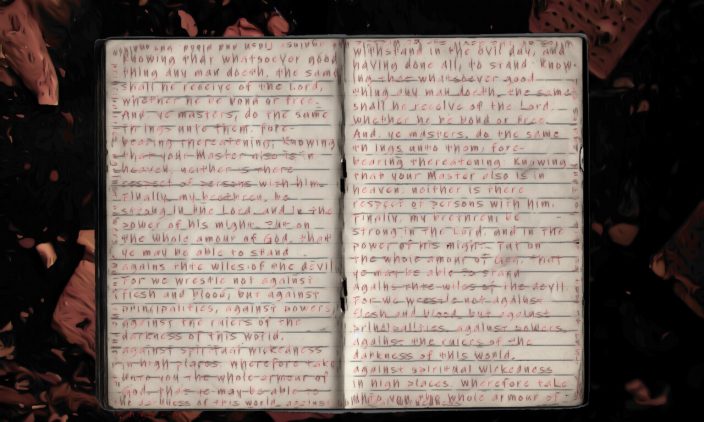 knowing that whatsoever good
thing any man doeth, the same
shall he receive of the Lord,
whether he be bond or free.
And ye masters, do the same
things unto them, fore-
bearing threatening; Knowing
that your Master also is in
heaven, neither is there
respect of persons with him.
Finally, my brethren, be
strong in the Lord, and in the
power of his might. Put on
the whole amour of God, that
ye may be able to stand
agains thte wiles of the devil.
For we wrestle not against
flesh and blood, but against
principalities, against powers,
against the rulers of the
darkness of this world.
against spiritual wickedness
in high places. Wherefore take
unto you the whole armour of
God, that ye may be able to
withstand in the evil day, and
having done all, to stand. Know-
ing thee whatsoever good
thing any man doeth, the same
shall he receive of the Lord.
whether he be bond or free.
And, ye masters, do the same
things unto them, fore-
bearing thereatening: Knowing
that your Master also is in
heaven, neither is there
respect of persons with him.
Finally, my brethren, be
strong in the Lord, and in the
power of his might. Put on
the whole amour of God, that
ye may be able to stand
agains thte wiles of the devil.
For we wrestle not against
flesh and blood, but against
principalities, against powers,
against the rulers of the
darkness of this world.
against spiritual wickedness
in high places. Wherefore take
unto you the whole armour of